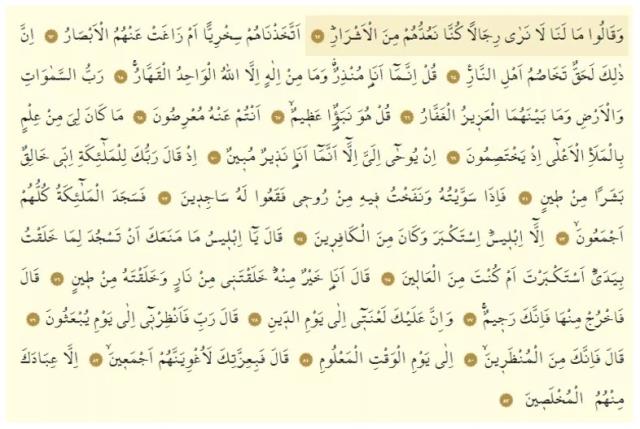 وَقَالُوا مَا لَنَا لَا نَرٰى رِجَالًا كُنَّا نَعُدُّهُمْ مِنَ الْاَشْرَارِۜ ٦٢ اَتَّخَذْنَاهُمْ سِخْرِيًّا اَمْ زَاغَتْ عَنْهُمُ الْاَبْصَارُ ٦٣ اِنَّ
ذٰلِكَ لَحَقٌّ تَخَاصُمُ اَهْلِ النَّارِ۟ ٦٤ قُلْ اِنَّمَٓا اَنَا۬ مُنْذِرٌۗ وَمَا مِنْ اِلٰهٍ اِلَّا اللّٰهُ الْوَاحِدُ الْقَهَّارُۚ ٦٥ رَبُّ السَّمٰوَاتِ
وَالْاَرْضِ وَمَا بَيْنَهُمَا الْعَز۪يزُ الْغَفَّارُ ٦٦ قُلْ هُوَ نَبَؤٌ۬ا عَظ۪يمٌۙ ٦٧ اَنْتُمْ عَنْهُ مُعْرِضُونَ ٦٨ مَا كَانَ لِيَ مِنْ عِلْمٍ
بِالْمَلَأِ الْاَعْلٰٓى اِذْ يَخْتَصِمُونَ ٦٩ اِنْ يُوحٰٓى اِلَيَّ اِلَّٓا اَنَّمَٓا اَنَا۬ نَذ۪يرٌ مُب۪ينٌ ٧٠ اِذْ قَالَ رَبُّكَ لِلْمَلٰٓئِكَةِ اِنّ۪ي خَالِقٌ
بَشَرًا مِنْ ط۪ينٍ ٧١ فَاِذَا سَوَّيْتُهُ وَنَفَخْتُ ف۪يهِ مِنْ رُوح۪ي فَقَعُوا لَهُ سَاجِد۪ينَ ٧٢ فَسَجَدَ الْمَلٰٓئِكَةُ كُلُّهُمْ
اَجْمَعُونَۙ ٧٣ اِلَّٓا اِبْل۪يسَۜ اِسْتَكْبَرَ وَكَانَ مِنَ الْكَافِر۪ينَ ٧٤ قَالَ يَٓا اِبْل۪يسُ مَا مَنَعَكَ اَنْ تَسْجُدَ لِمَا خَلَقْتُ
بِيَدَيَّۜ اَسْتَكْبَرْتَ اَمْ كُنْتَ مِنَ الْعَال۪ينَ ٧٥ قَالَ اَنَا۬ خَيْرٌ مِنْهُۜ خَلَقْتَن۪ي مِنْ نَارٍ وَخَلَقْتَهُ مِنْ ط۪ينٍ ٧٦ قَالَ
فَاخْرُجْ مِنْهَا فَاِنَّكَ رَج۪يمٌۚ ٧٧ وَاِنَّ عَلَيْكَ لَعْنَت۪ٓي اِلٰى يَوْمِ الدّ۪ينِ ٧٨ قَالَ رَبِّ فَاَنْظِرْن۪ٓي اِلٰى يَوْمِ يُبْعَثُونَ ٧٩
قَالَ فَاِنَّكَ مِنَ الْمُنْظَر۪ينَۙ ٨٠ اِلٰى يَوْمِ الْوَقْتِ الْمَعْلُومِ ٨١ قَالَ فَبِعِزَّتِكَ لَاُغْوِيَنَّهُمْ اَجْمَع۪ينَۙ ٨٢ اِلَّا عِبَادَكَ
مِنْهُمُ الْمُخْلَص۪ينَ ٨٣